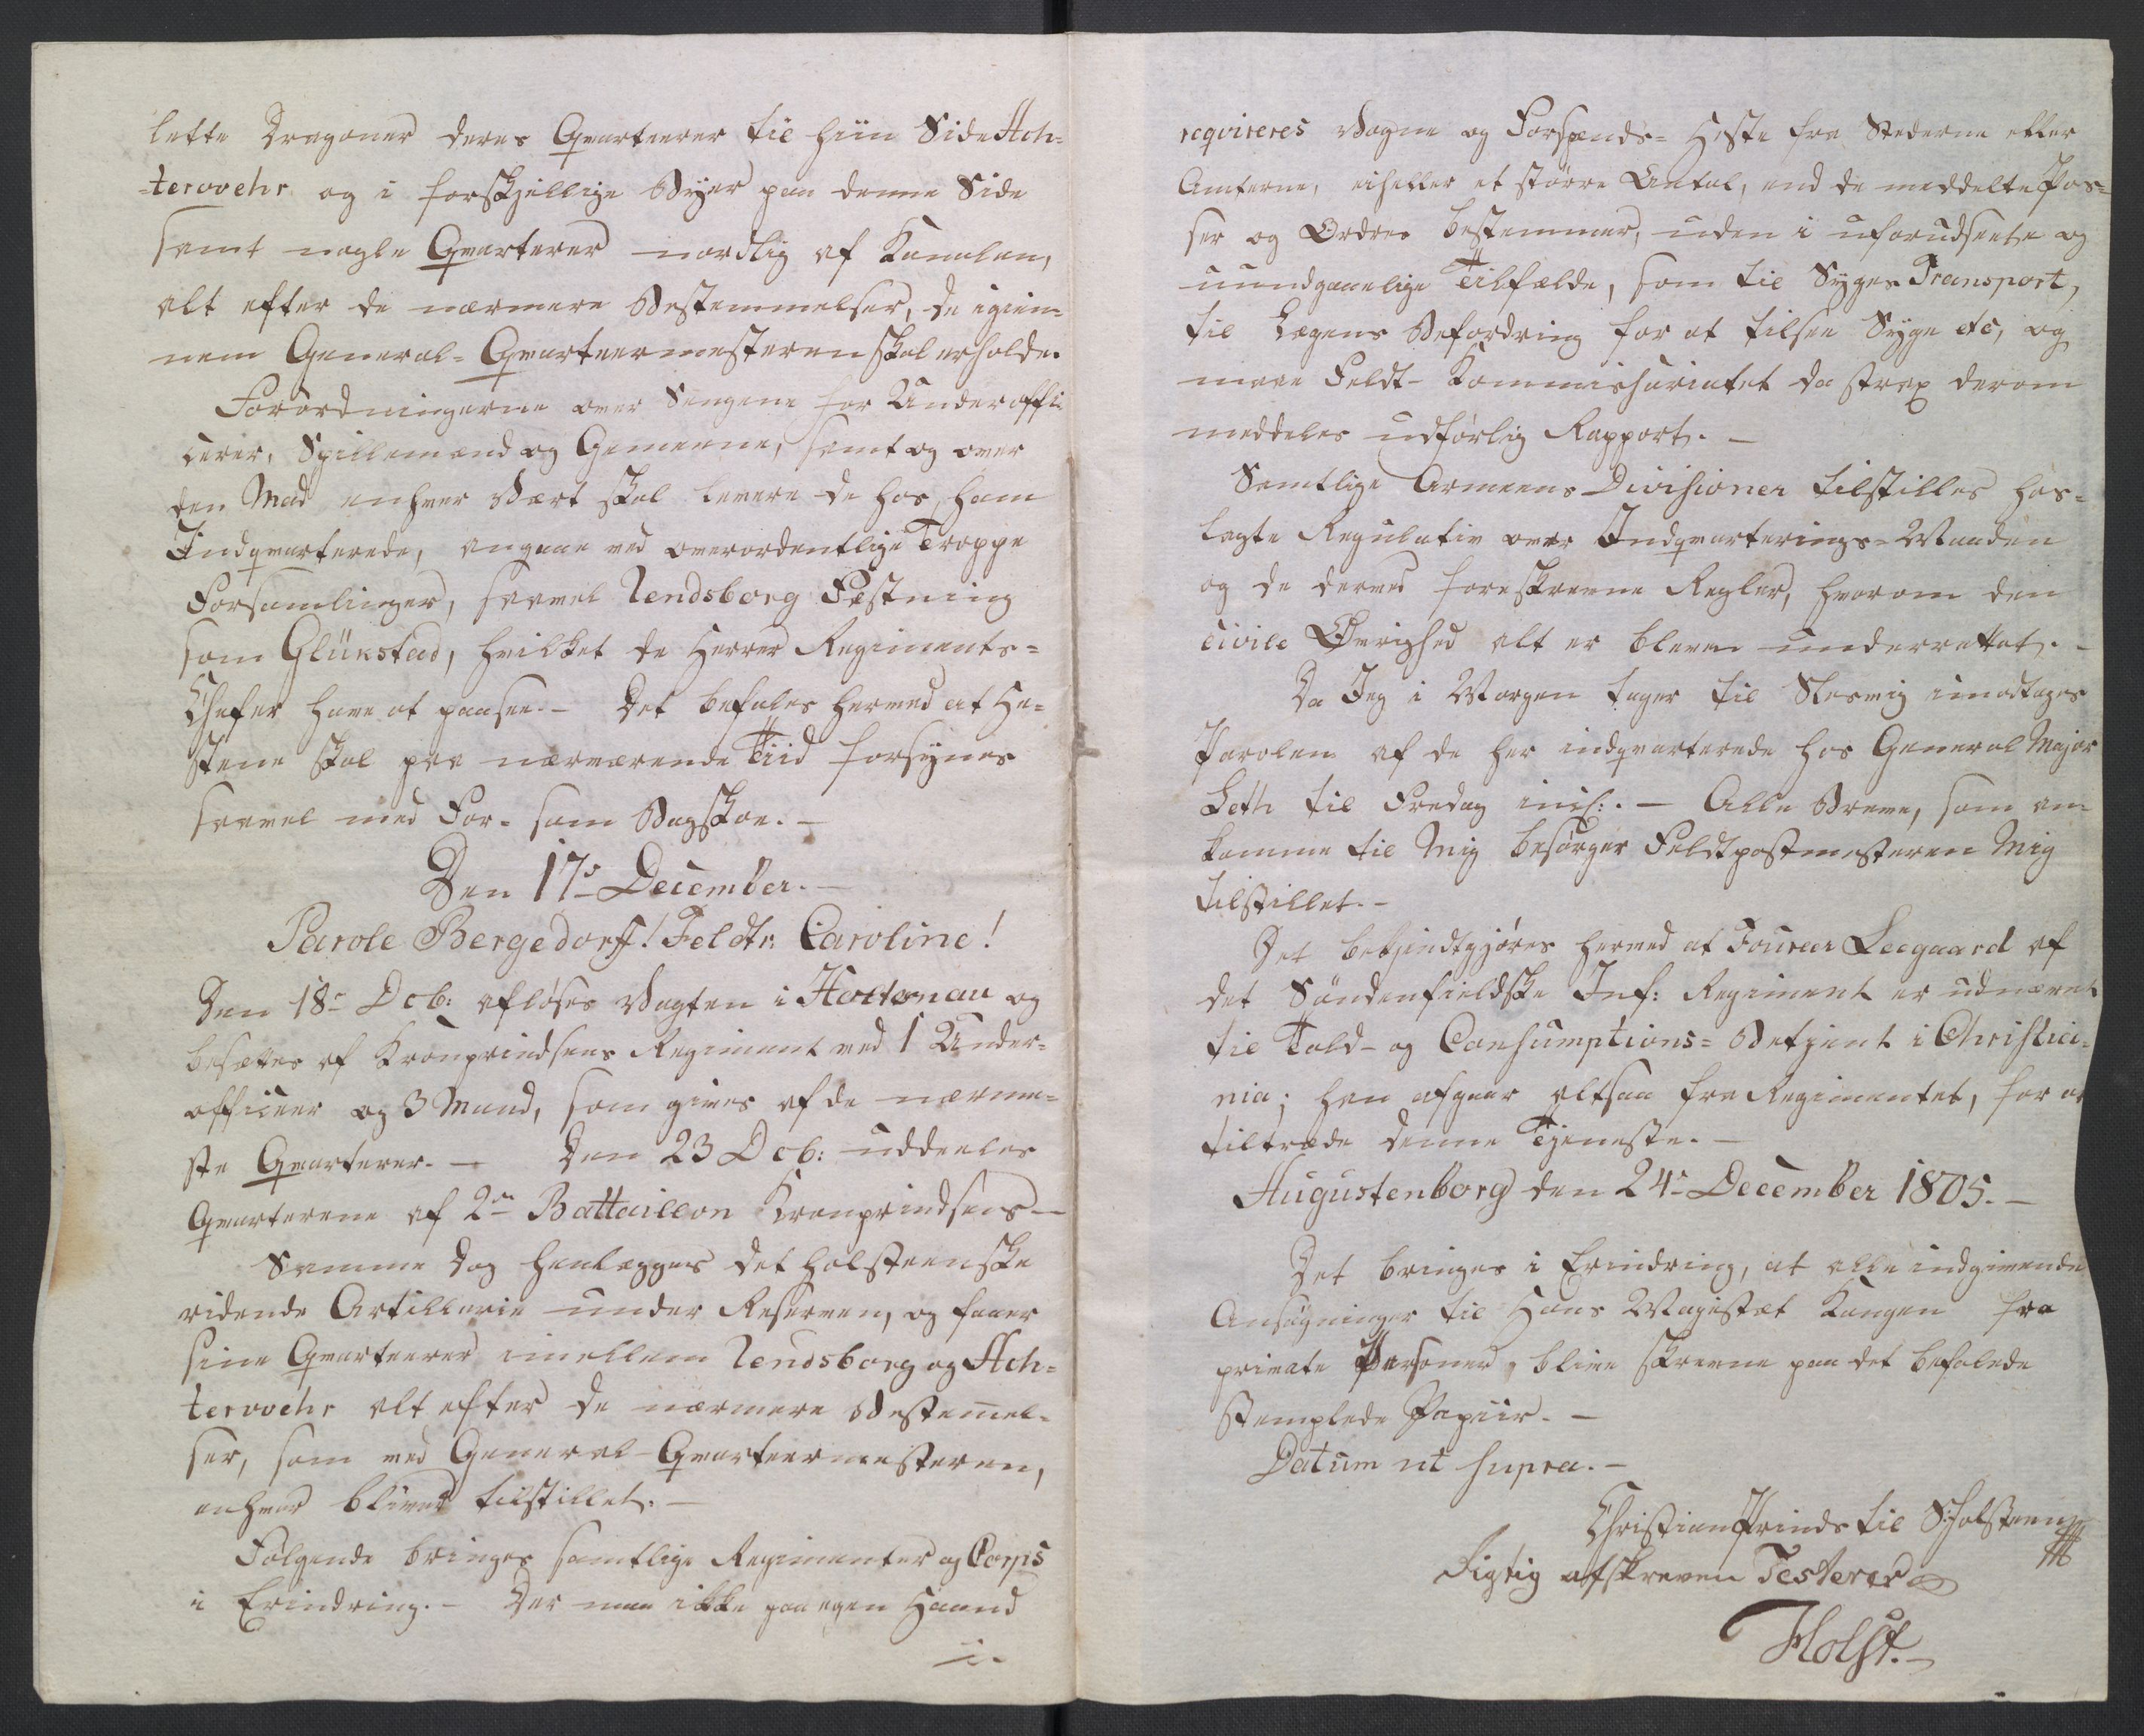 lette Dragoner deres Qvarteerer til hiin Side Ach-
-terwehr og i forskjellige Byer paa denne Side
samt nogle Qvarterer nordlig af Kanalen,
alt efter de nærmere Bestemmelser, de igien-
nem General-Qvarteermesteren skal erholde.
Forordningerne over Sengene for Underoffi-
cerer, Spillemænd og Gemeene, samt og over
den Mad enhver Vært skal levere de hos ham
Indqvarterede, angaae ved overordentlige Troppe
Forsamlinger, saavel Rendsborg Fæstning
som Glükstad, hvilket de Herrer Regiments-
Chefer have at paasee. - Det befales herved at He-
stene skal paa nærværende Tiid forsynes
saavel med For- som Bagskoe. -
Den 17de December. -
Parole Bergedorff! Feldtr: Caroline!
Den 18de Dcb: afløses Vagten i Holtenau og
besættes af Kronprindsens Regiment med 1 Under-
officeer og 3 Mand, som gives af de nærme-
ste Qvarterer. - Den 23 Dcb: uddeeles
Qvarterene af 2den Battaillon Kronprindsens -
Samme Dag henlægges det holsteenske
ridende Artillerie under Reserven, og faaer
sine Qvarteerer imellem Rendsborg og Ach-
terwehr alt efter de nærmere Bestemel-
ser, som ved General-Qvarteermesteren,
enhver bliver tilstillet. -
Følgende bringes samtlige Regimenter og Corps
i Erindring. - Der maa ikke paa egen Haand
reqvireres Vogne og Forspænds- Heste fra Stæderne eller
Amterne, eiheller et større Antal, end de meddelte Pas-
ser og Ordres bestemmer, uden i uforudseete og
uundgaaelige Tilfælde, som til Syges Transport,
til Lægens Befordring for at tilsee Syge etc, og
maae Feldt-Kommissariatet da strax derom
meddeles udførlig Rapport. -
Samtlige Armeens Divisioner tilstilles hos-
lagte Regulativ over Indqvarterings-Maaden
og de derved foreskrevne Regler, hvorom den
civile Øvrighed alt er bleven underrettet. -
Da Jeg i Morgen tager til Slesvig imodtages
Parolen af de her indqvarterede hos General Major
Leth til Fredag incl:. - Alle Breve, som an-
komme til Mig besørger Feldtpostmesteren Mig
tilstillet. -
Det bekjendtgjøres herved at Foureer Leegaard af
det Søndenfieldske Inf: Regiment er udnævnt
til Told- og Consumptions-Betjent i Christia-
nia; han afgaar altsaa fra Regimentet, for at
tiltræde denne Tjeneste. -
Augustenborg den 24de December 1805. -
Det bringes i Erindring, at alle indgivende
Ansøgninger til Hans Majestæt Kongen fra
private Personer, blive skrevne paa det befalede
stemplede Papiir. -
Datum ut supra. -
Christian Prinds til S: Holsteen
Rigtig afskreven Testerer
Holst. -